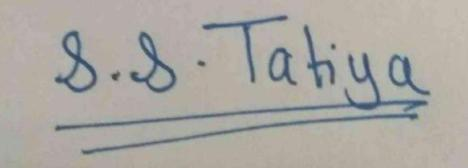 S.S. Tatiya